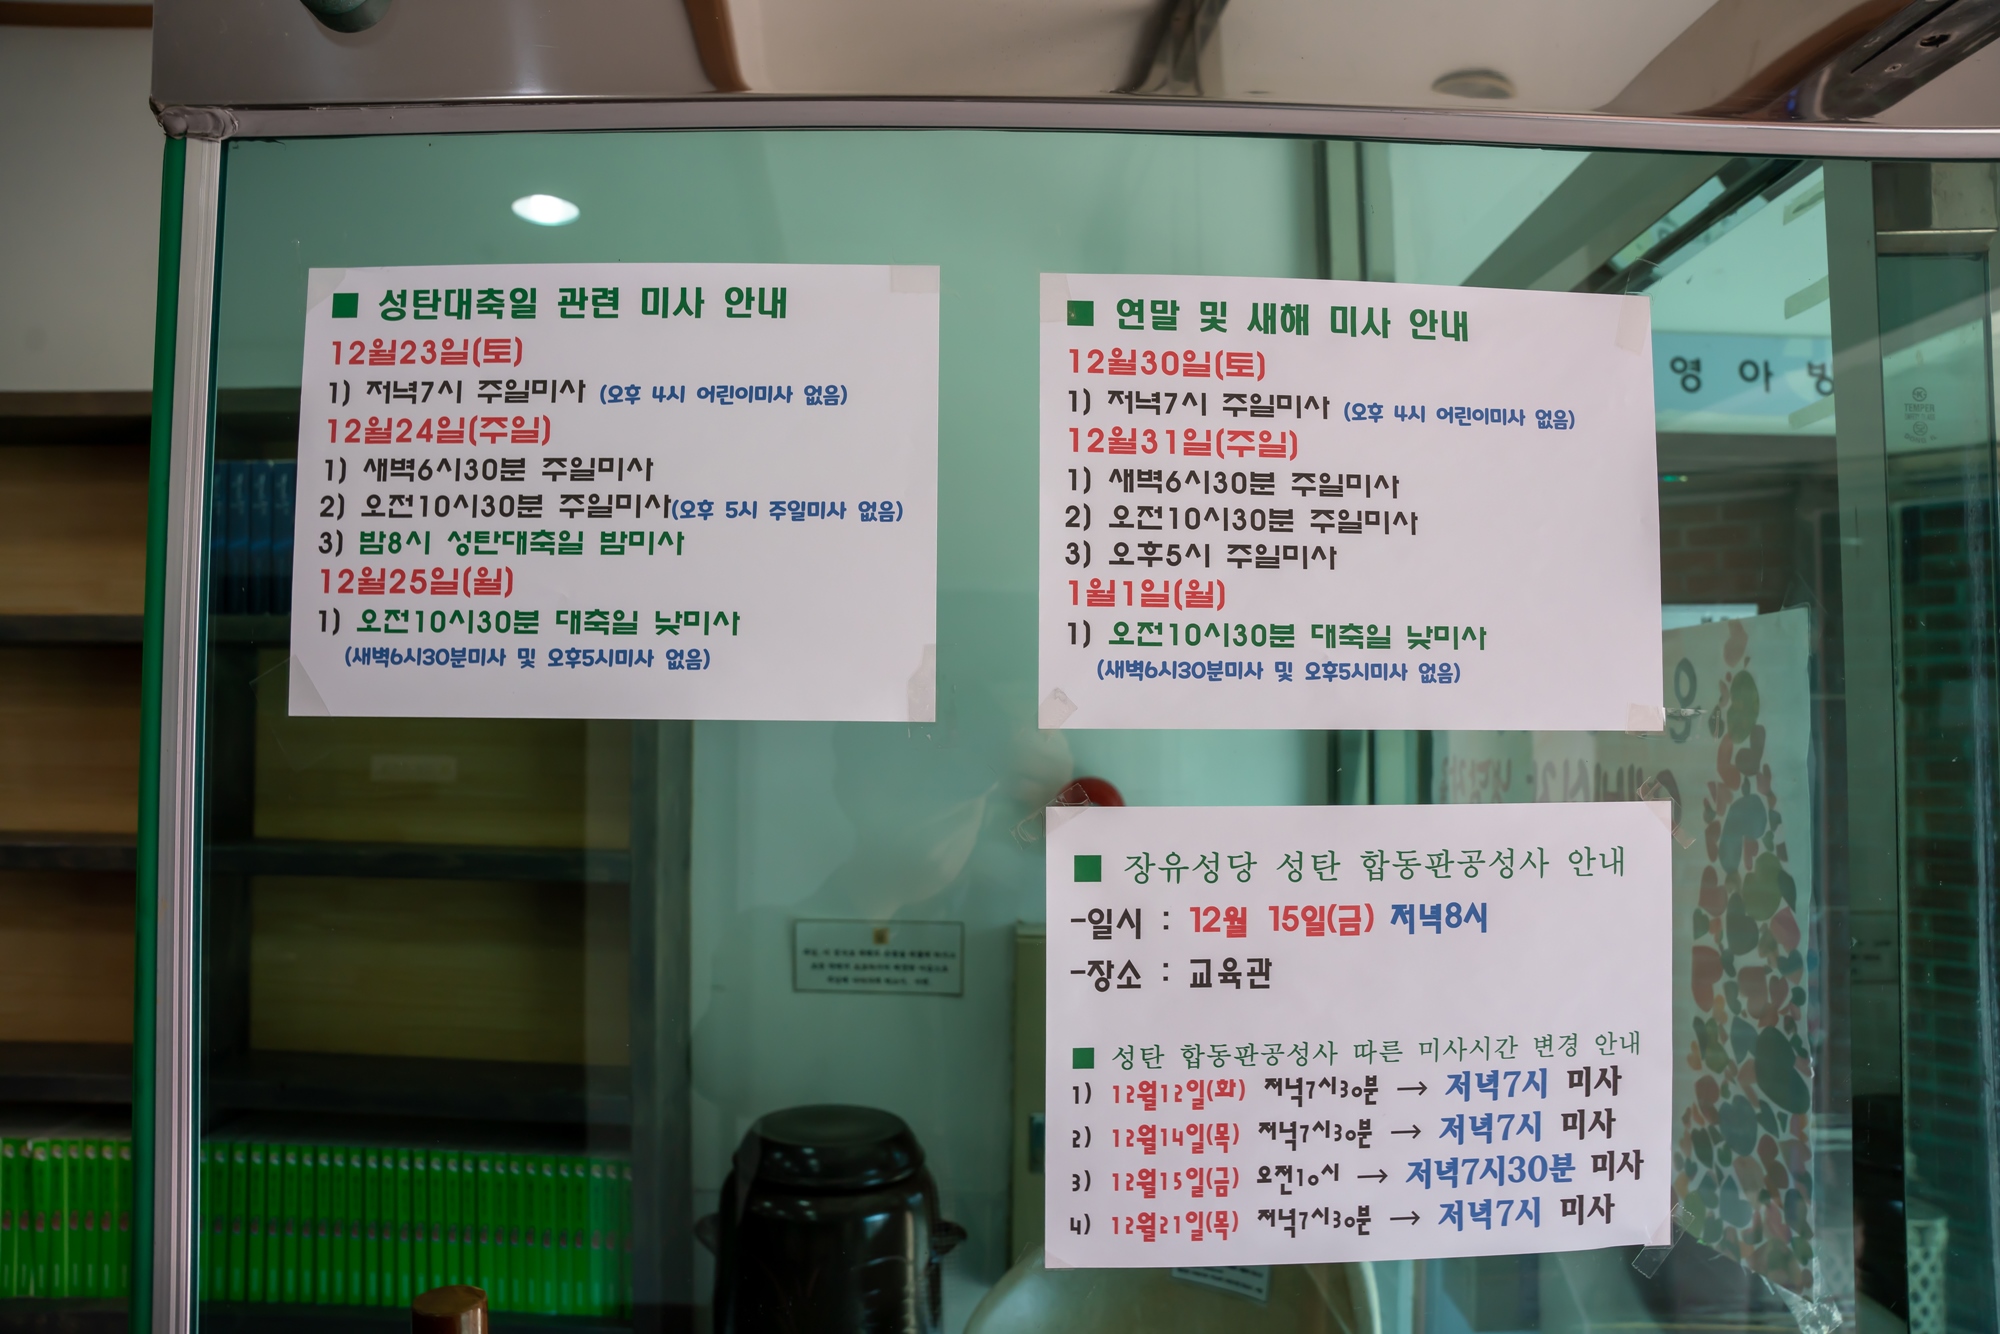 ■ 성탄대축일 관련 미사 안내
12월23일(토)
1) 저녁7시 주일미사 (오후 4시 어린이미사 없음)
12월24일(주일)
1) 새벽6시30분 주일미사
2) 오전10시30분 주일미사(오후 5시 주일미사 없음)
3) 밤8시 성탄대축일 밤미사
12월25일(월)
1) 오전10시30분 대축일 낮미사
(새벽6시30분미사 및 오후5시미사 없음)
■ 연말 및 새해 미사 안내
12월30일(토)
1) 저녁7시 주일미사 (오후 4시 어린이미사 없음)
12월31일(주일)
1) 새벽6시30분 주일미사
2) 오전10시30분 주일미사
3) 오후5시 주일미사
1월1일(월)
1) 오전10시30분 대축일 낮미사
(새벽6시30분미사 및 오후5시미사 없음)
영 아 방
■ 장유성당 성탄 합동판공성사 안내
-일시 : 12월 15일(금) 저녁8시
-장소 : 교육관
■ 성탄 합동판공성사 따른 미사시간 변경 안내
1) 12월12일(화) 저녁7시30분 → 저녁7시 미사
2) 12월14일(목) 저녁7시30분 → 저녁7시 미사
3) 12월15일(금) 오전10시 → 저녁7시30분 미사
4) 12월21일(목) 저녁7시30분 → 저녁7시 미사